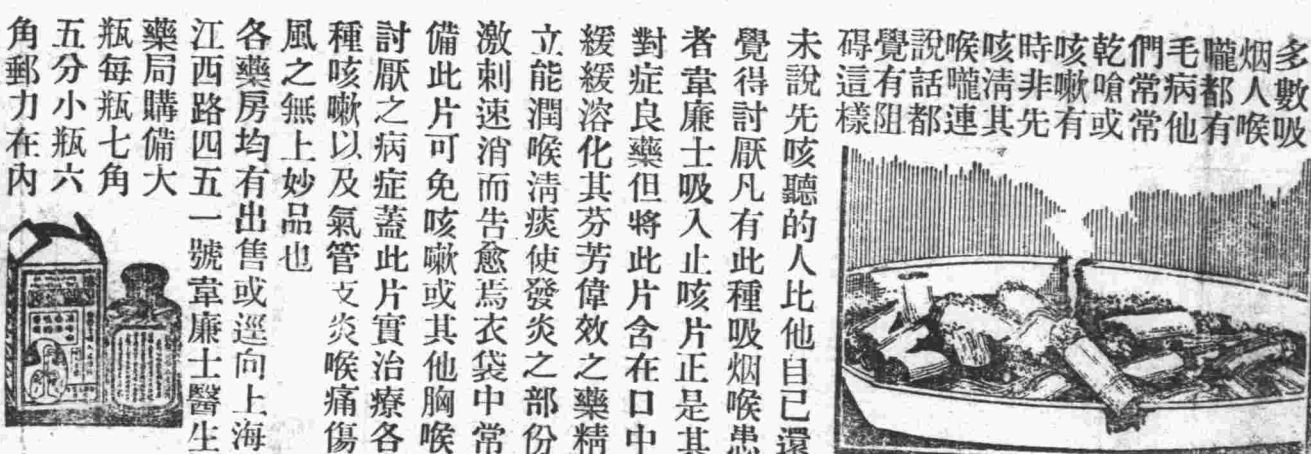 多數吸
烟人喉
嚨都有
毛病他
們常常
乾嗆或
咳嗽有
時非先
咳淸其
喉嚨連
說話都
覺有阻
礙這樣
未說先咳聽的人比他自已還
覺得討厭凡有此種吸烟喉患
者韋廉士吸入止咳片正是其
對症良藥但將此片含在口中
緩緩溶化其芬芳偉效之藥精
立能潤喉淸痰使發炎之部份
激刺速消而告愈焉衣袋中常
備此片可免咳嗽或其他胸喉
討厭之病症蓋此片實治療各
種咳嗽以及氣管支炎喉痛傷
風之無上妙品也
各藥房均有出售或逕向上海
江西路四五一號韋廉士醫生
藥局購備大
瓶每瓶七角
五分小瓶六
角郵力在內